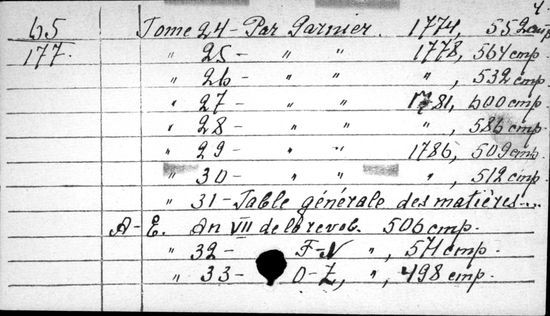 4.
65 Tome 24 - Par Garnier. 1774, 552 стр
177. " 25 - " " 1778, 564 стр.
" 26 - " " " , 532 стр.
" 27 - " " 1781, 600 стр.
" 28 - " " " , 586 стр.
" 29 - " " 1786, 509 стр.
" 30 - " " " , 512 стр.
" 31 - Table générale des matières...
A - E. An VII de la revol. 506 стр.
" 32 - F-N " , 571 стр.
" 33 - O-Z, " , 498 стр.